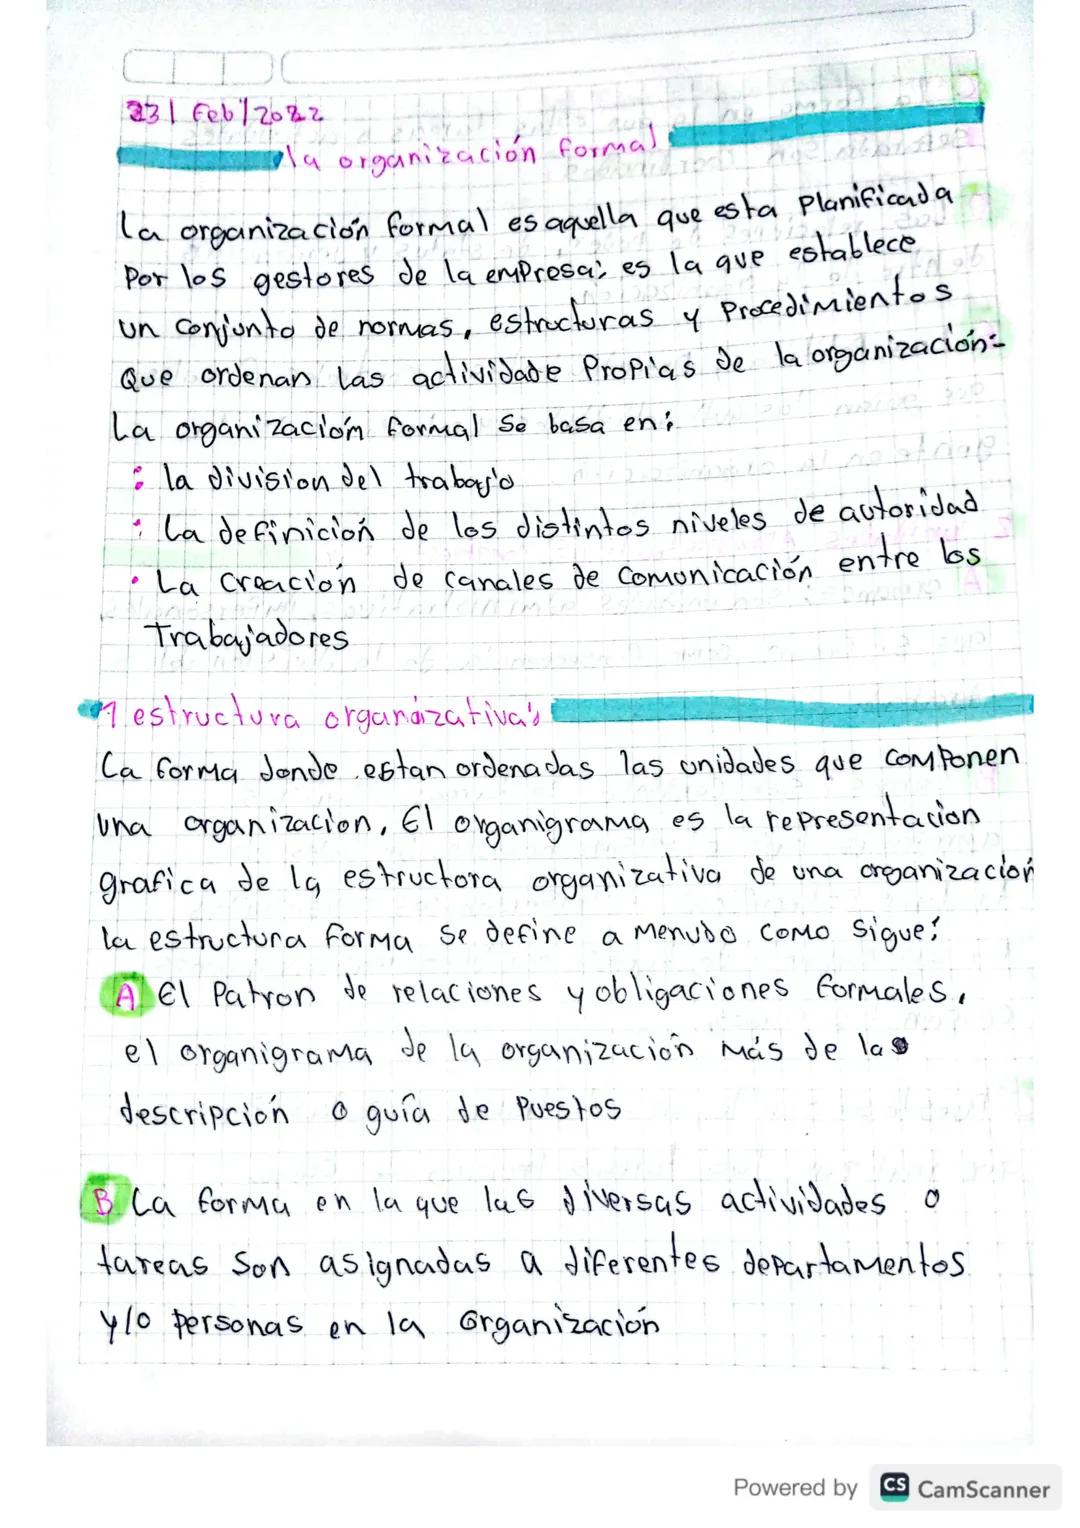 23 | Feb | 2022
la organización formal
La organización formal es aquella que esta Planificada
Por los gestores de la empresa: es la que establece
un conjunto de normas, estructuras y Procedimientos
Que ordenan las actividade Propias de la organización.
La organización formal Se basa en:
: la division del trabajo
: La definición de los distintos niveles de autoridad
• La Creación de canales de Comunicación entre los
Trabajadores
1 estructura organizativa's
La forma donde estan ordenadas las unidades que comPonen
Una organizacion, El organigrama es la representacion
grafica de la estructora organizativa de una organización
la estructura forma Se define a menudo como Sigue:
A El Patron de relaciones y obligaciones formales,
el organigrama de la organización más de las
descripción o guía de Puestos
B La forma en la que las diversas actividades o
tareas Son asignadas a diferentes departamentos
y/o Personas en la Organización
Powered by CS CamScanner